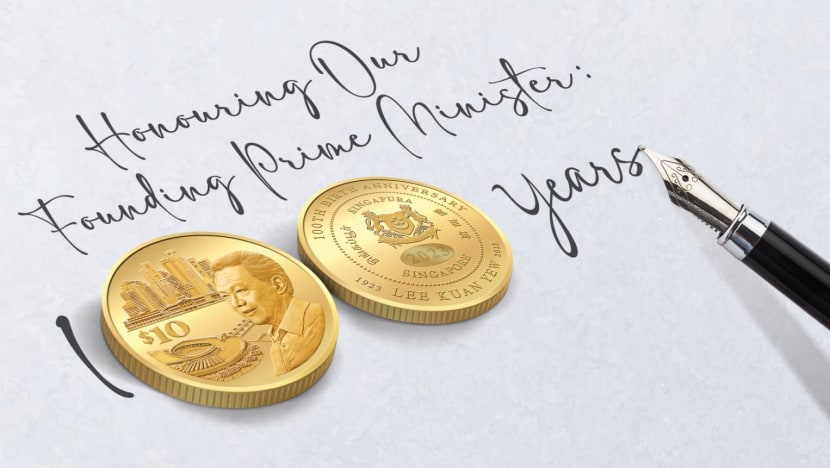 Honouring Our
Founding Prime Minister:
1 Years
$10
100TH BIRTH ANNIVERSARY
SINGAPURA
2023
SINGAPORE
1923 LEE KUAN YEW 2015